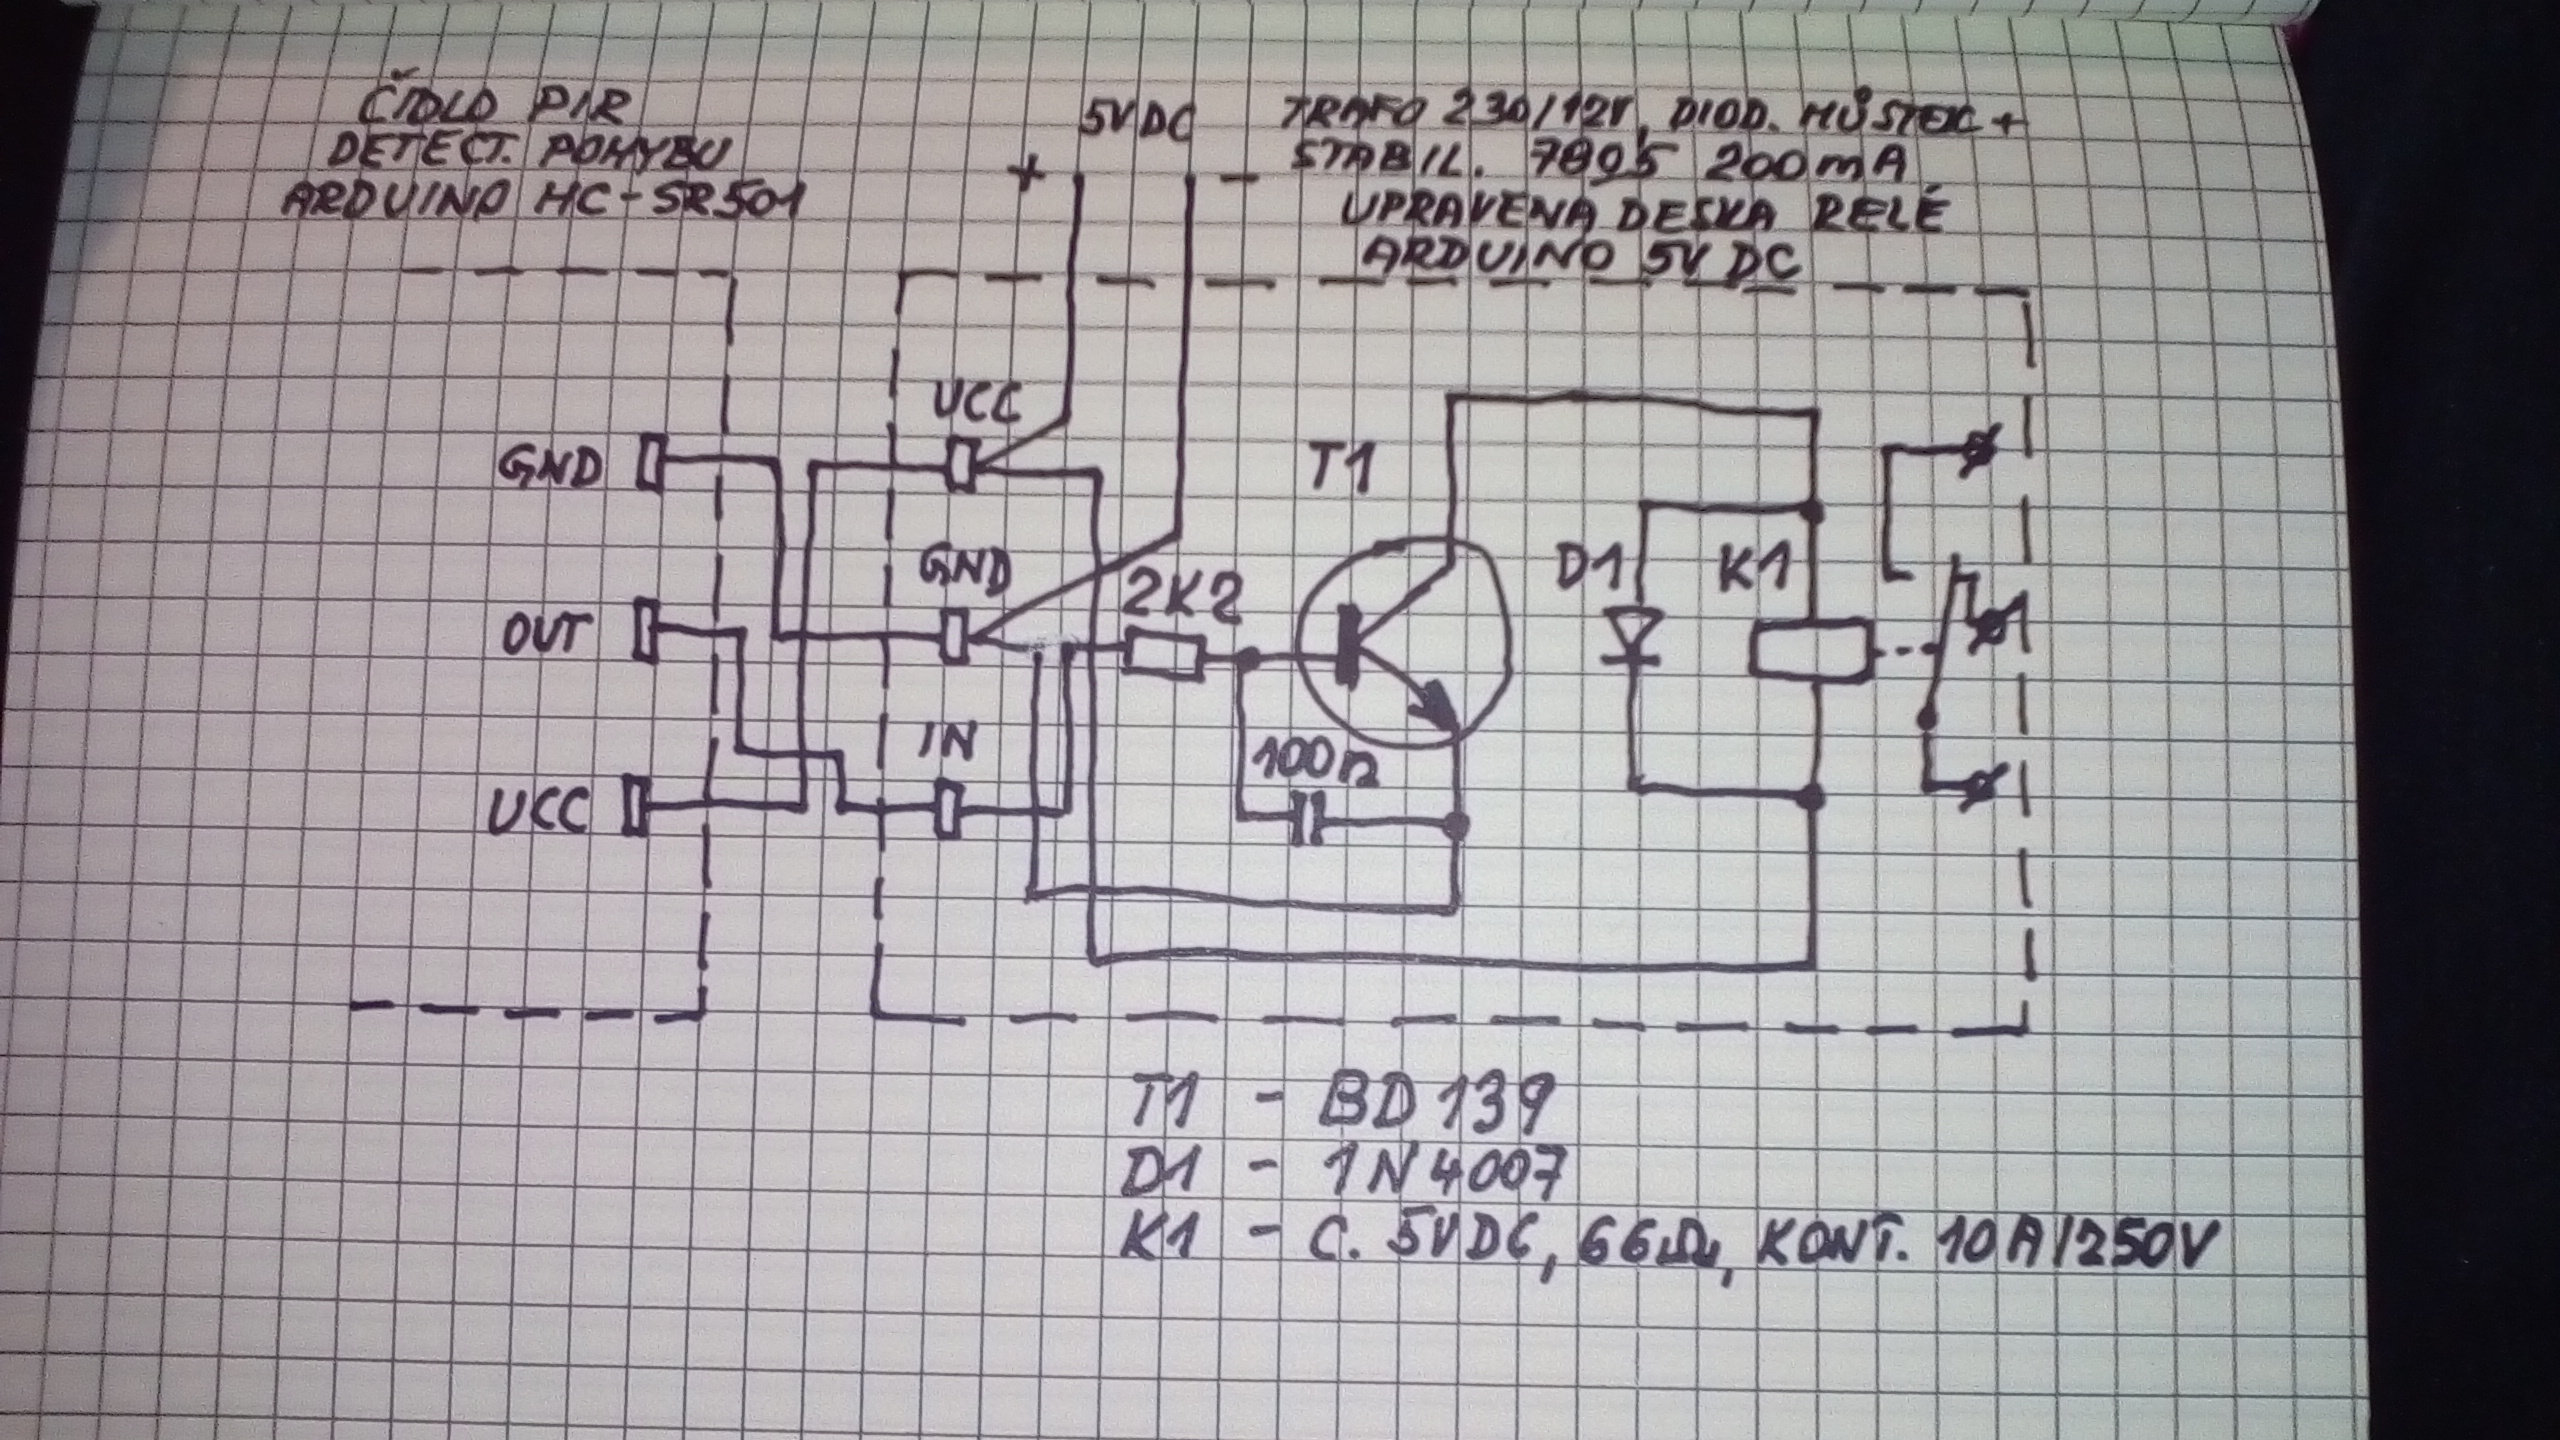 ČIDLO PIR
DETECT. POHYBU
ARDUINO HC-SR501
5VDC
+ -
TRAFO 230/12V, DIOD. MŮSTEK +
STABIL. 7805 200mA
UPRAVENA DESKA RELÉ
ARDUINO 5V DC
UCC
GND
T1
GND
2K2
D1
K1
OUT
IN
100n
UCC
T1 - BD 139
D1 - 1N4007
K1 - C. 5VDC, 66Ω, KONT. 10A/250V